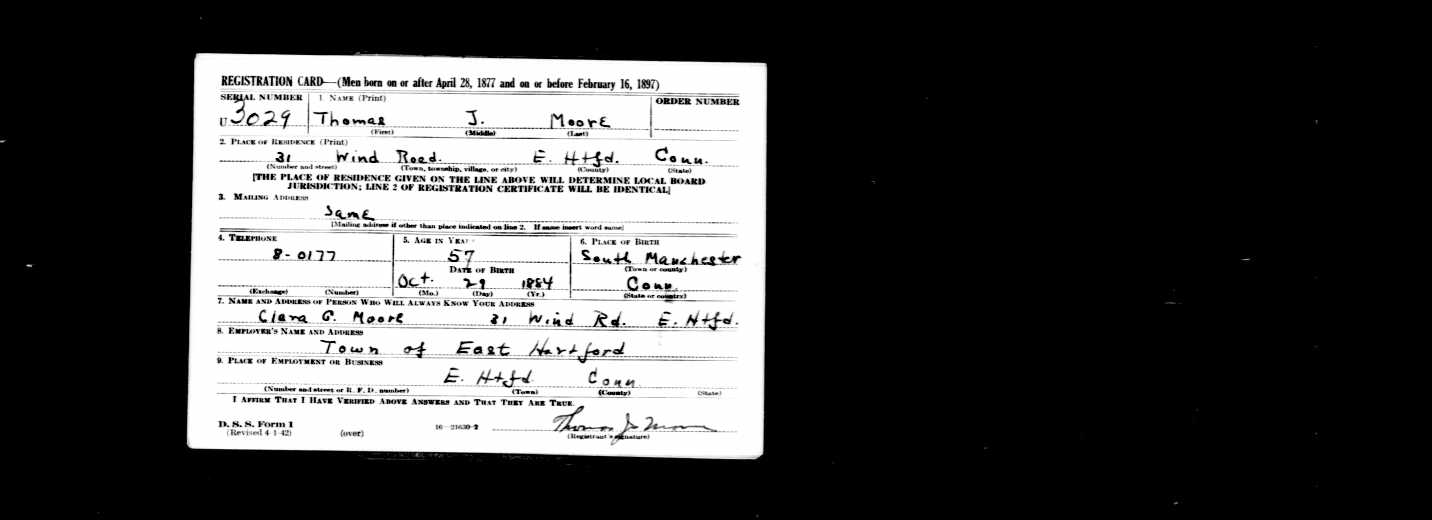 REGISTRATION CARD—(Men born on or after April 28, 1877 and on or before February 16, 1897)
SERIAL NUMBER 1. NAME (Print) ORDER NUMBER
U 3029 Thomas J. Moore
(First) (Middle) (Last)
2. PLACE OF RESIDENCE (Print)
31 Wind Road. E. Htfd. Conn.
(Number and street) (Town, township, village, or city) (County) (State)
[THE PLACE OF RESIDENCE GIVEN ON THE LINE ABOVE WILL DETERMINE LOCAL BOARD
JURISDICTION; LINE 2 OF REGISTRATION CERTIFICATE WILL BE IDENTICAL]
3. MAILING ADDRESS
Same
[Mailing address if other than place indicated on line 2. If same insert word same]
4. TELEPHONE 5. AGE IN YEARS 6. PLACE OF BIRTH
8-0177 57 South Manchester
DATE OF BIRTH (Town or county)
Oct. 29 1884 Conn.
(Exchange) (Number) (Mo.) (Day) (Yr.) (State or country)
7. NAME AND ADDRESS OF PERSON WHO WILL ALWAYS KNOW YOUR ADDRESS
Clara G. Moore 31 Wind Rd. E. Htfd.
8. EMPLOYER'S NAME AND ADDRESS
Town of East Hartford
9. PLACE OF EMPLOYMENT OR BUSINESS
E. Htfd. Conn
(Number and street or R. F. D. number) (Town) (County) (State)
I AFFIRM THAT I HAVE VERIFIED ABOVE ANSWERS AND THAT THEY ARE TRUE.
D. S. S. Form 1
(Revised 4-1-42) (over) 16—21630-2 Thomas J. Moore
(Registrant's signature)